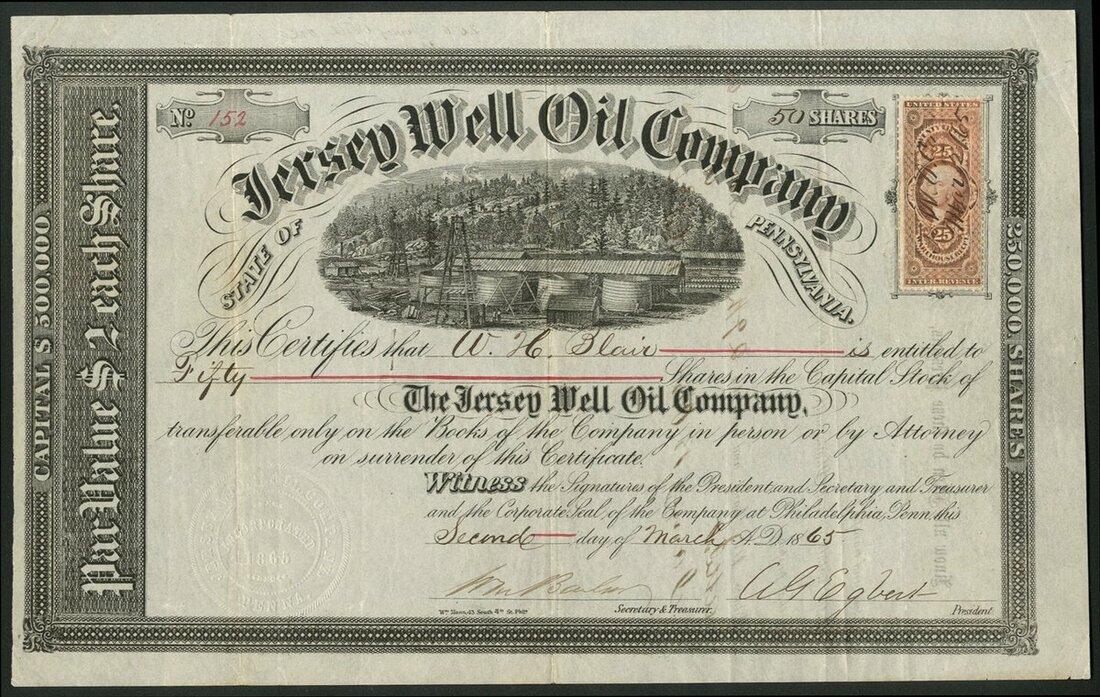 Nº 152
50 SHARES
Jersey Well Oil Company
STATE OF PENNSYLVANIA.
UNITED STATES
25 25
INTER. REVENUE
CAPITAL $ 500,000
Par Value $ 2 each Share.
250,000 SHARES
This Certifies that W. H. Blair is entitled to
Fifty Shares in the Capital Stock of
The Jersey Well Oil Company,
transferable only on the Books of the Company in person or by Attorney
on surrender of this Certificate.
Witness the Signatures of the President and Secretary and Treasurer
and the Corporate Seal of the Company at Philadelphia, Penn. this
Second day of March A.D. 1865
INCORPORATED
1865
PENNA.
A G Egbert
Wm Mann, 43 South 4th St. Phila
Secretary & Treasurer.
President